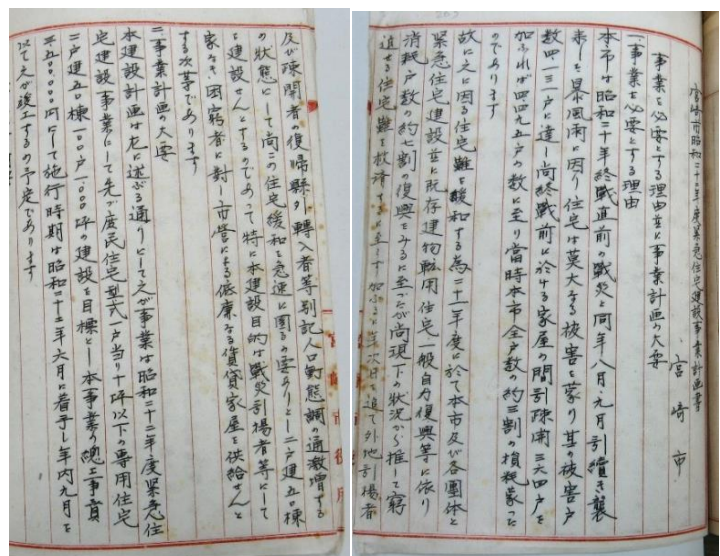 宮崎市昭和二十二年度緊急住宅建設事業計画書
宮崎市
事業を必要とする理由並に事業計画の大要
一、事業を必要とする理由
本市は昭和二十年終戦直前の戦災と同年八月九月引續き襲
来した暴風雨に因り住宅は莫大なる被害を蒙り其の被害戸
数四一三一戸に達し尚終戦前に於ける家屋の間引疎開三六四戸を
加ふれば四四九五戸の数に至り當時本市全戸数の約三割の損耗蒙った
のであります
故に之に因る住宅難を緩和する為二十一年度に於て本市及び各團体と
緊急住宅建設並に既存建物転用住宅一般自力復興等に依り
消耗戸数の約七割の復興をみるに至ったが尚現下の状況から推して窮
迫せる住宅難を救済するに至らず加ふるに年次日を追て外地引揚者
及び疎開者の復帰縣外轉入者等別記人口動態調の通激増する
の状態にして尚この住宅緩和を急速に圖るの要ありとし二戸建五〇棟
を建設せんとするのであって特に本建設目的は戦災引揚者等にして
家なき困窮者に対し市営による低廉なる賃貸家屋を供給せんと
する次第であります
二、事業計画の大要
本建設計画は左に述ぶる通りにして之が事業は昭和二十二年度緊急住
宅建設事業にして先づ庶民住宅型式一戸当り十坪以下の専用住宅
二戸建五〇棟一〇〇戸一〇〇〇坪の建設を目標とし本事業の總工事費
五〇〇〇〇〇円にして施行時期は昭和二十二年六月に着手し年内九月を
以て之が竣工するの予定であります
宮崎市役所